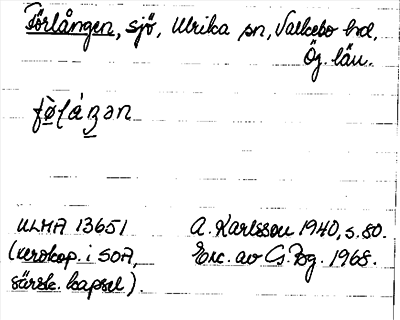 Förlången, sjö, Ulrika sn, Valkebo hd,
Ög. län.
ULMA 13651
A. Karlsson 1940, s. 80.
(xerokop. i SOA,
Exc. av G. Bg. 1968.
särsk. kapsel).